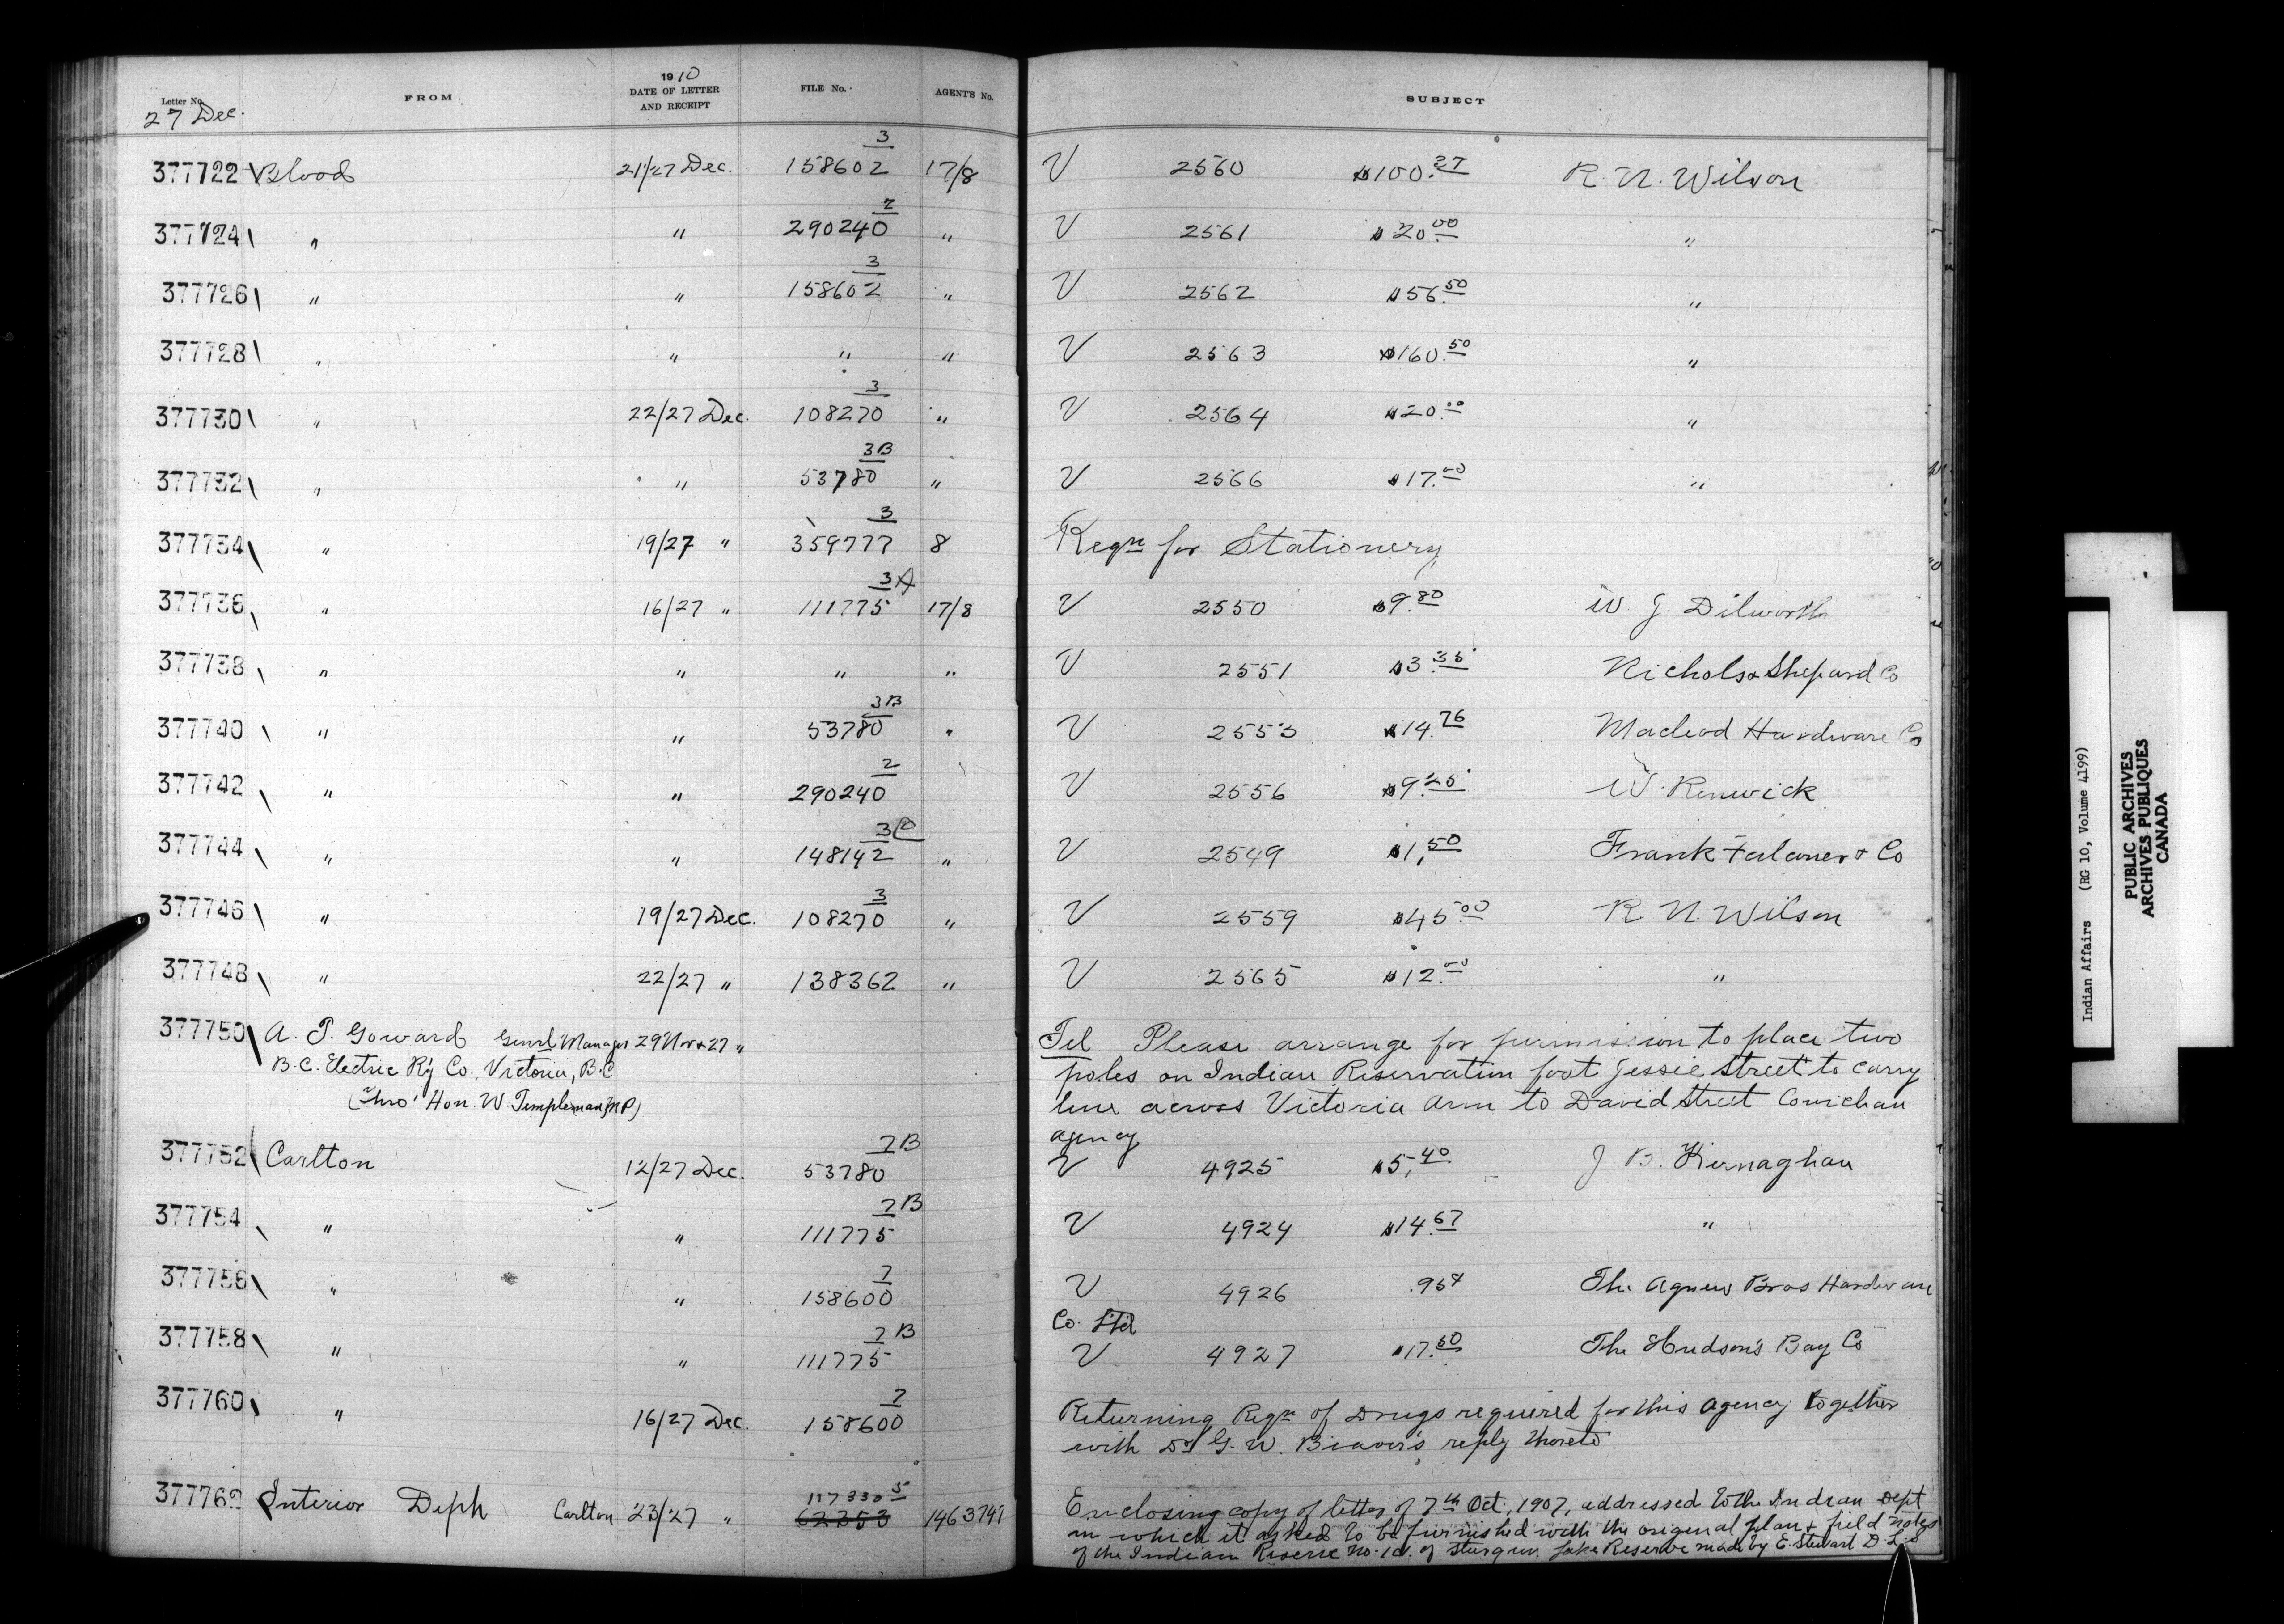 1910
Letter No. FROM DATE OF LETTER AND RECEIPT FILE No. AGENT'S No. SUBJECT
27 Dec.
377722 Blood 21/27 Dec. 158602 3 17/8 V 2560 $100.27 R. N. Wilson
377724 " " 290240 2 " V 2561 $20.00 "
377726 " " 158602 3 " V 2562 $56.50 "
377728 " " " " V 2563 $160.50 "
377730 " 22/27 Dec. 108270 3 " V 2564 $20.00 "
377732 " " 53780 3B " V 2566 $17.00 "
377734 " 19/27 " 359777 3 8 Reqn for Stationery
377736 " 16/27 " 111775 3A 17/8 V 2550 $9.80 W. J. Dilworth
377738 " " " " V 2551 $3.35 Nichols & Shepard Co
377740 " " 53780 3B " V 2553 $14.76 Macleod Hardware Co
377742 " " 290240 2 V 2556 $9.25 W. Renwick
377744 " " 148142 3 " V 2549 $1,50 Frank Falconer & Co
377746 " 19/27 Dec. 108270 3 " V 2559 $45.00 R. N. Wilson
377748 " 22/27 " 138362 " V 2565 $12.00 "
377750 A. T. Goward Genrl Manager 29 Nov & 27 " Tel Please arrange for permission to place two
B.C. Electric Ry Co., Victoria, B.C. poles on Indian Reservation foot Jessie Street to carry
(Thro' Hon. W. Templeman, MP) line across Victoria Arm to David Street Cowichan
Agency
377752 Carlton 12/27 Dec. 53780 7B V 4925 $5,40 J. B. Kernaghan
377754 " " 111775 7B V 4924 $14.67 "
377756 " " 158600 7 V 4926 .95¢ The Agnew Bros Hardware
Co. Ltd
377758 " " 111775 7B V 4927 $17.50 The Hudson's Bay Co
377760 " 16/27 Dec. 158600 7 Returning Reqn of Drugs required for this Agency together
with Dr G. W. Beaver's reply thereto
377762 Interior Dept Carlton 23/27 " 62353 1463747 Enclosing copy of letter of 7th Oct., 1907, addressed to the Indian Dept
in which it asked to be furnished with the original plan & field notes
of the Indian Reserve No. of Sturgeon Lake Reserve made by E. Stewart D L S
Indian Affairs (RG 10, Volume 4199)
PUBLIC ARCHIVES
ARCHIVES PUBLIQUES
CANADA